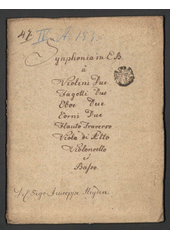 47. IV. A. 183
Symphonia in E.B.
à
Violini Due
Fagotti Due
Oboe Due
Corni Due
Flauto Traverso
Viola di Alto
Violoncello
e
Basso
Del Sigre Giuseppe